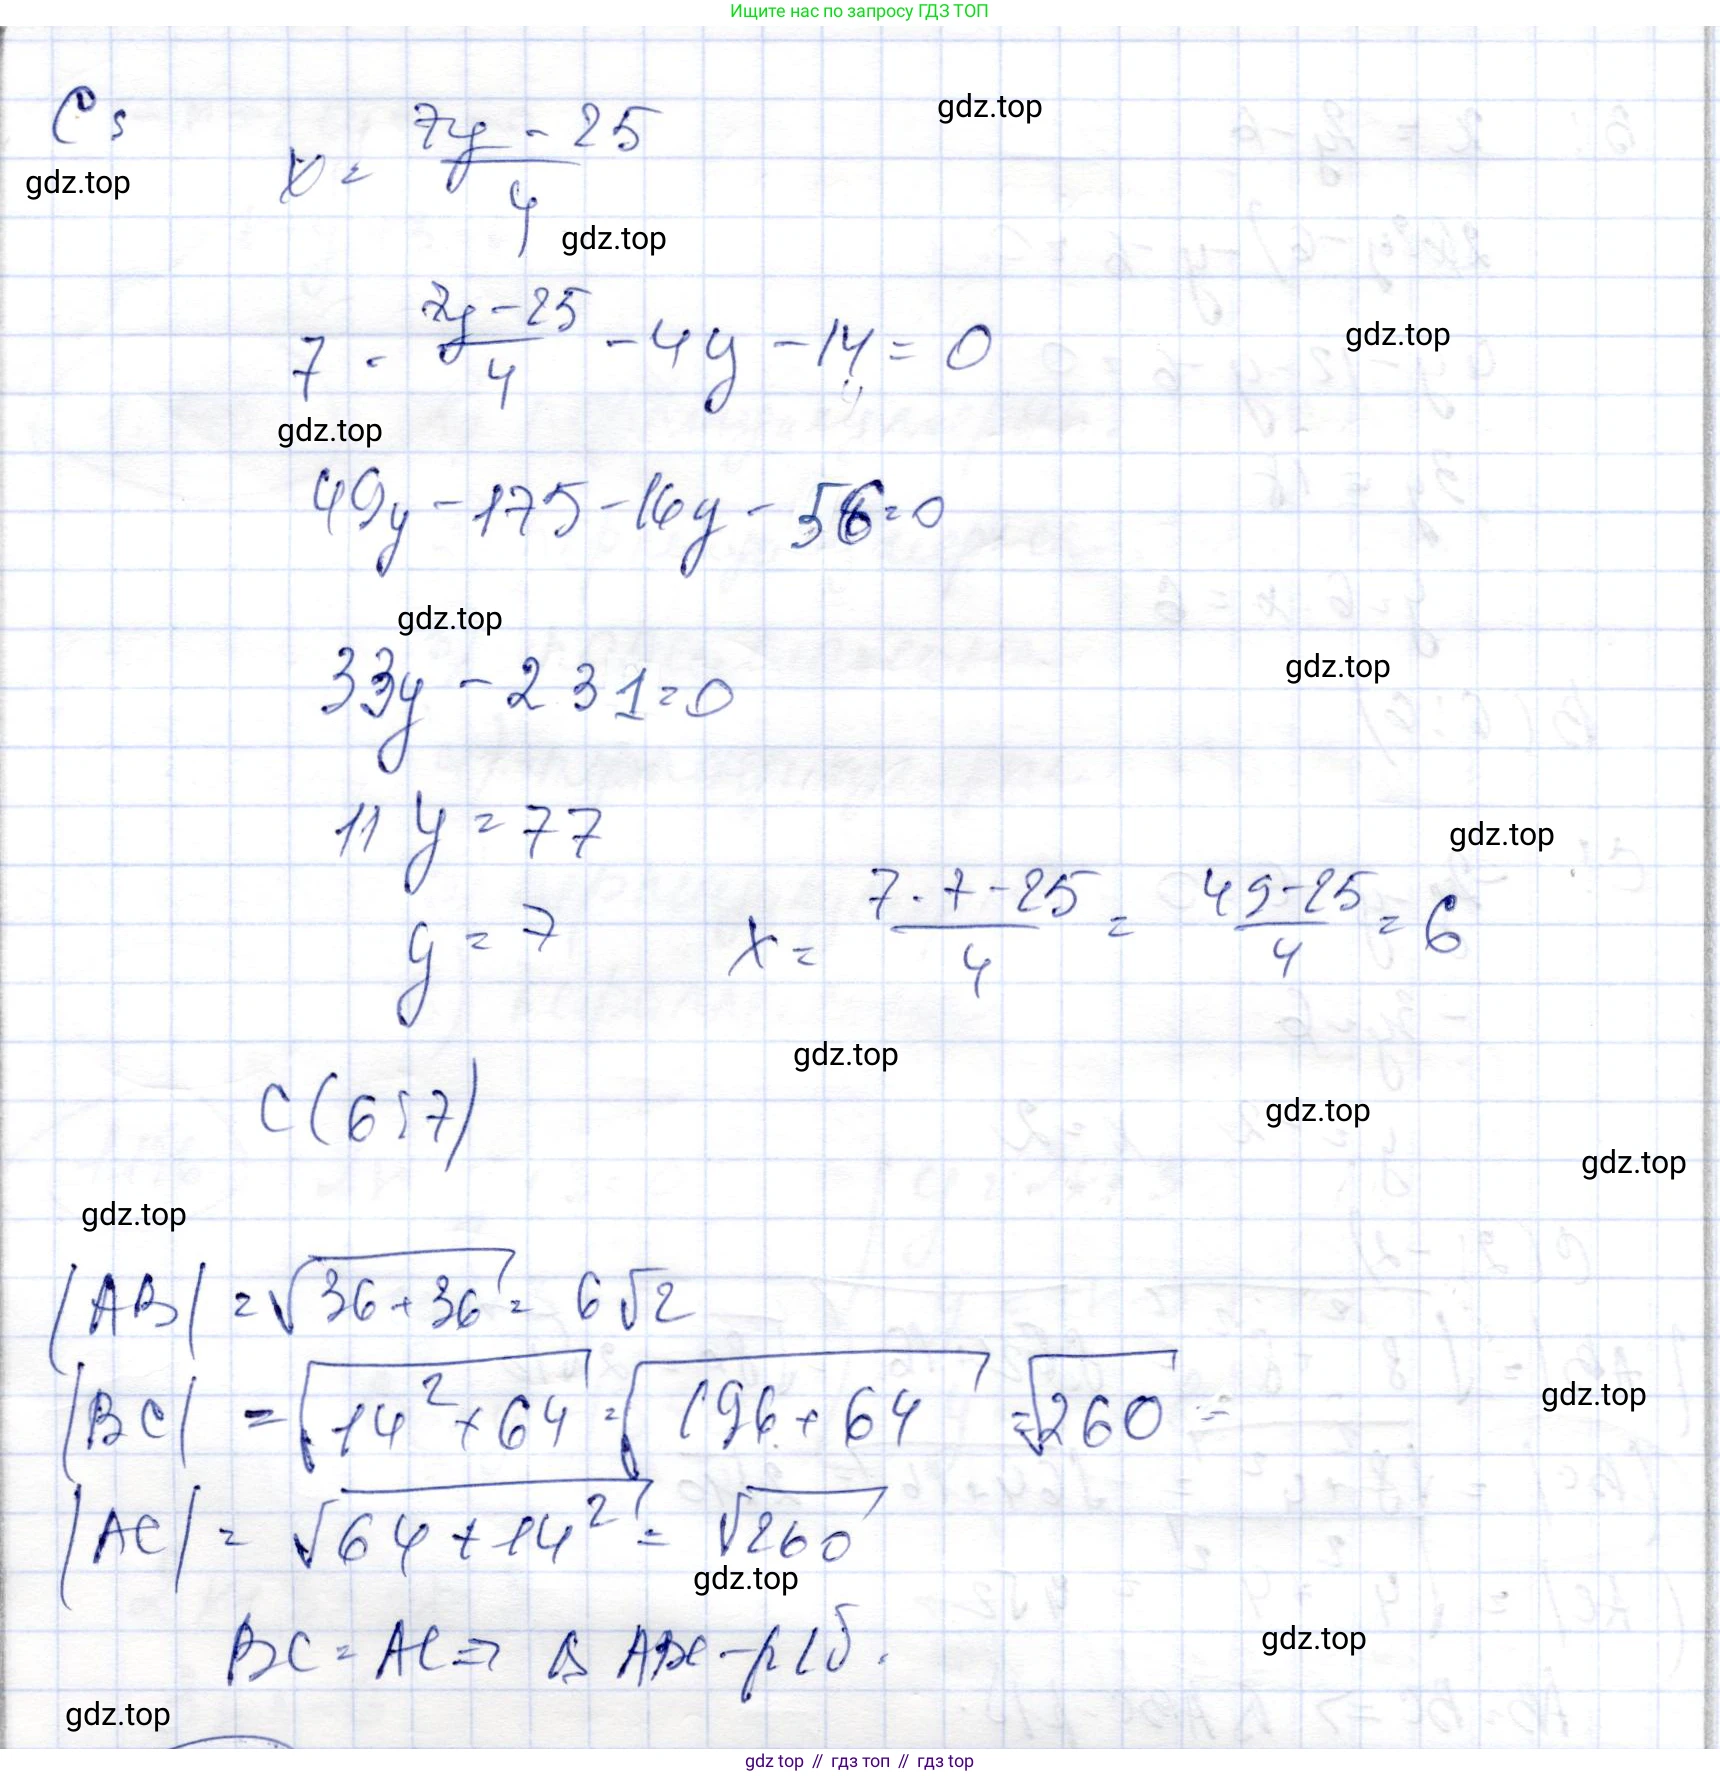 Ищите нас по запросу ГДЗ ТОП
C:
gdz.top
x = (7y - 25)/4
gdz.top
gdz.top
7 · (7y - 25)/4 - 4y - 14 = 0
gdz.top
gdz.top
49y - 175 - 16y - 56 = 0
gdz.top
33y - 231 = 0
gdz.top
11y = 77
gdz.top
y = 7 x = (7·7 - 25)/4 = (49 - 25)/4 = 6
gdz.top
C(6;7)
gdz.top
gdz.top
gdz.top
|AB| = √(36+36) = 6√2
|BC| = √(14² + 64) = √(196 + 64) = √260 =
gdz.top
|AC| = √(64 + 14²) = √260
gdz.top
BC = AC => Δ ABC - р/б.
gdz.top
gdz.top
gdz top // гдз топ // гдз top